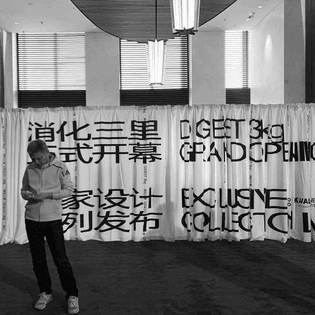 消化三里 DIGEST 3kg
式开幕 GRAND OPENING
家设计 EXCLUSIVE
列发布 COLLECTION